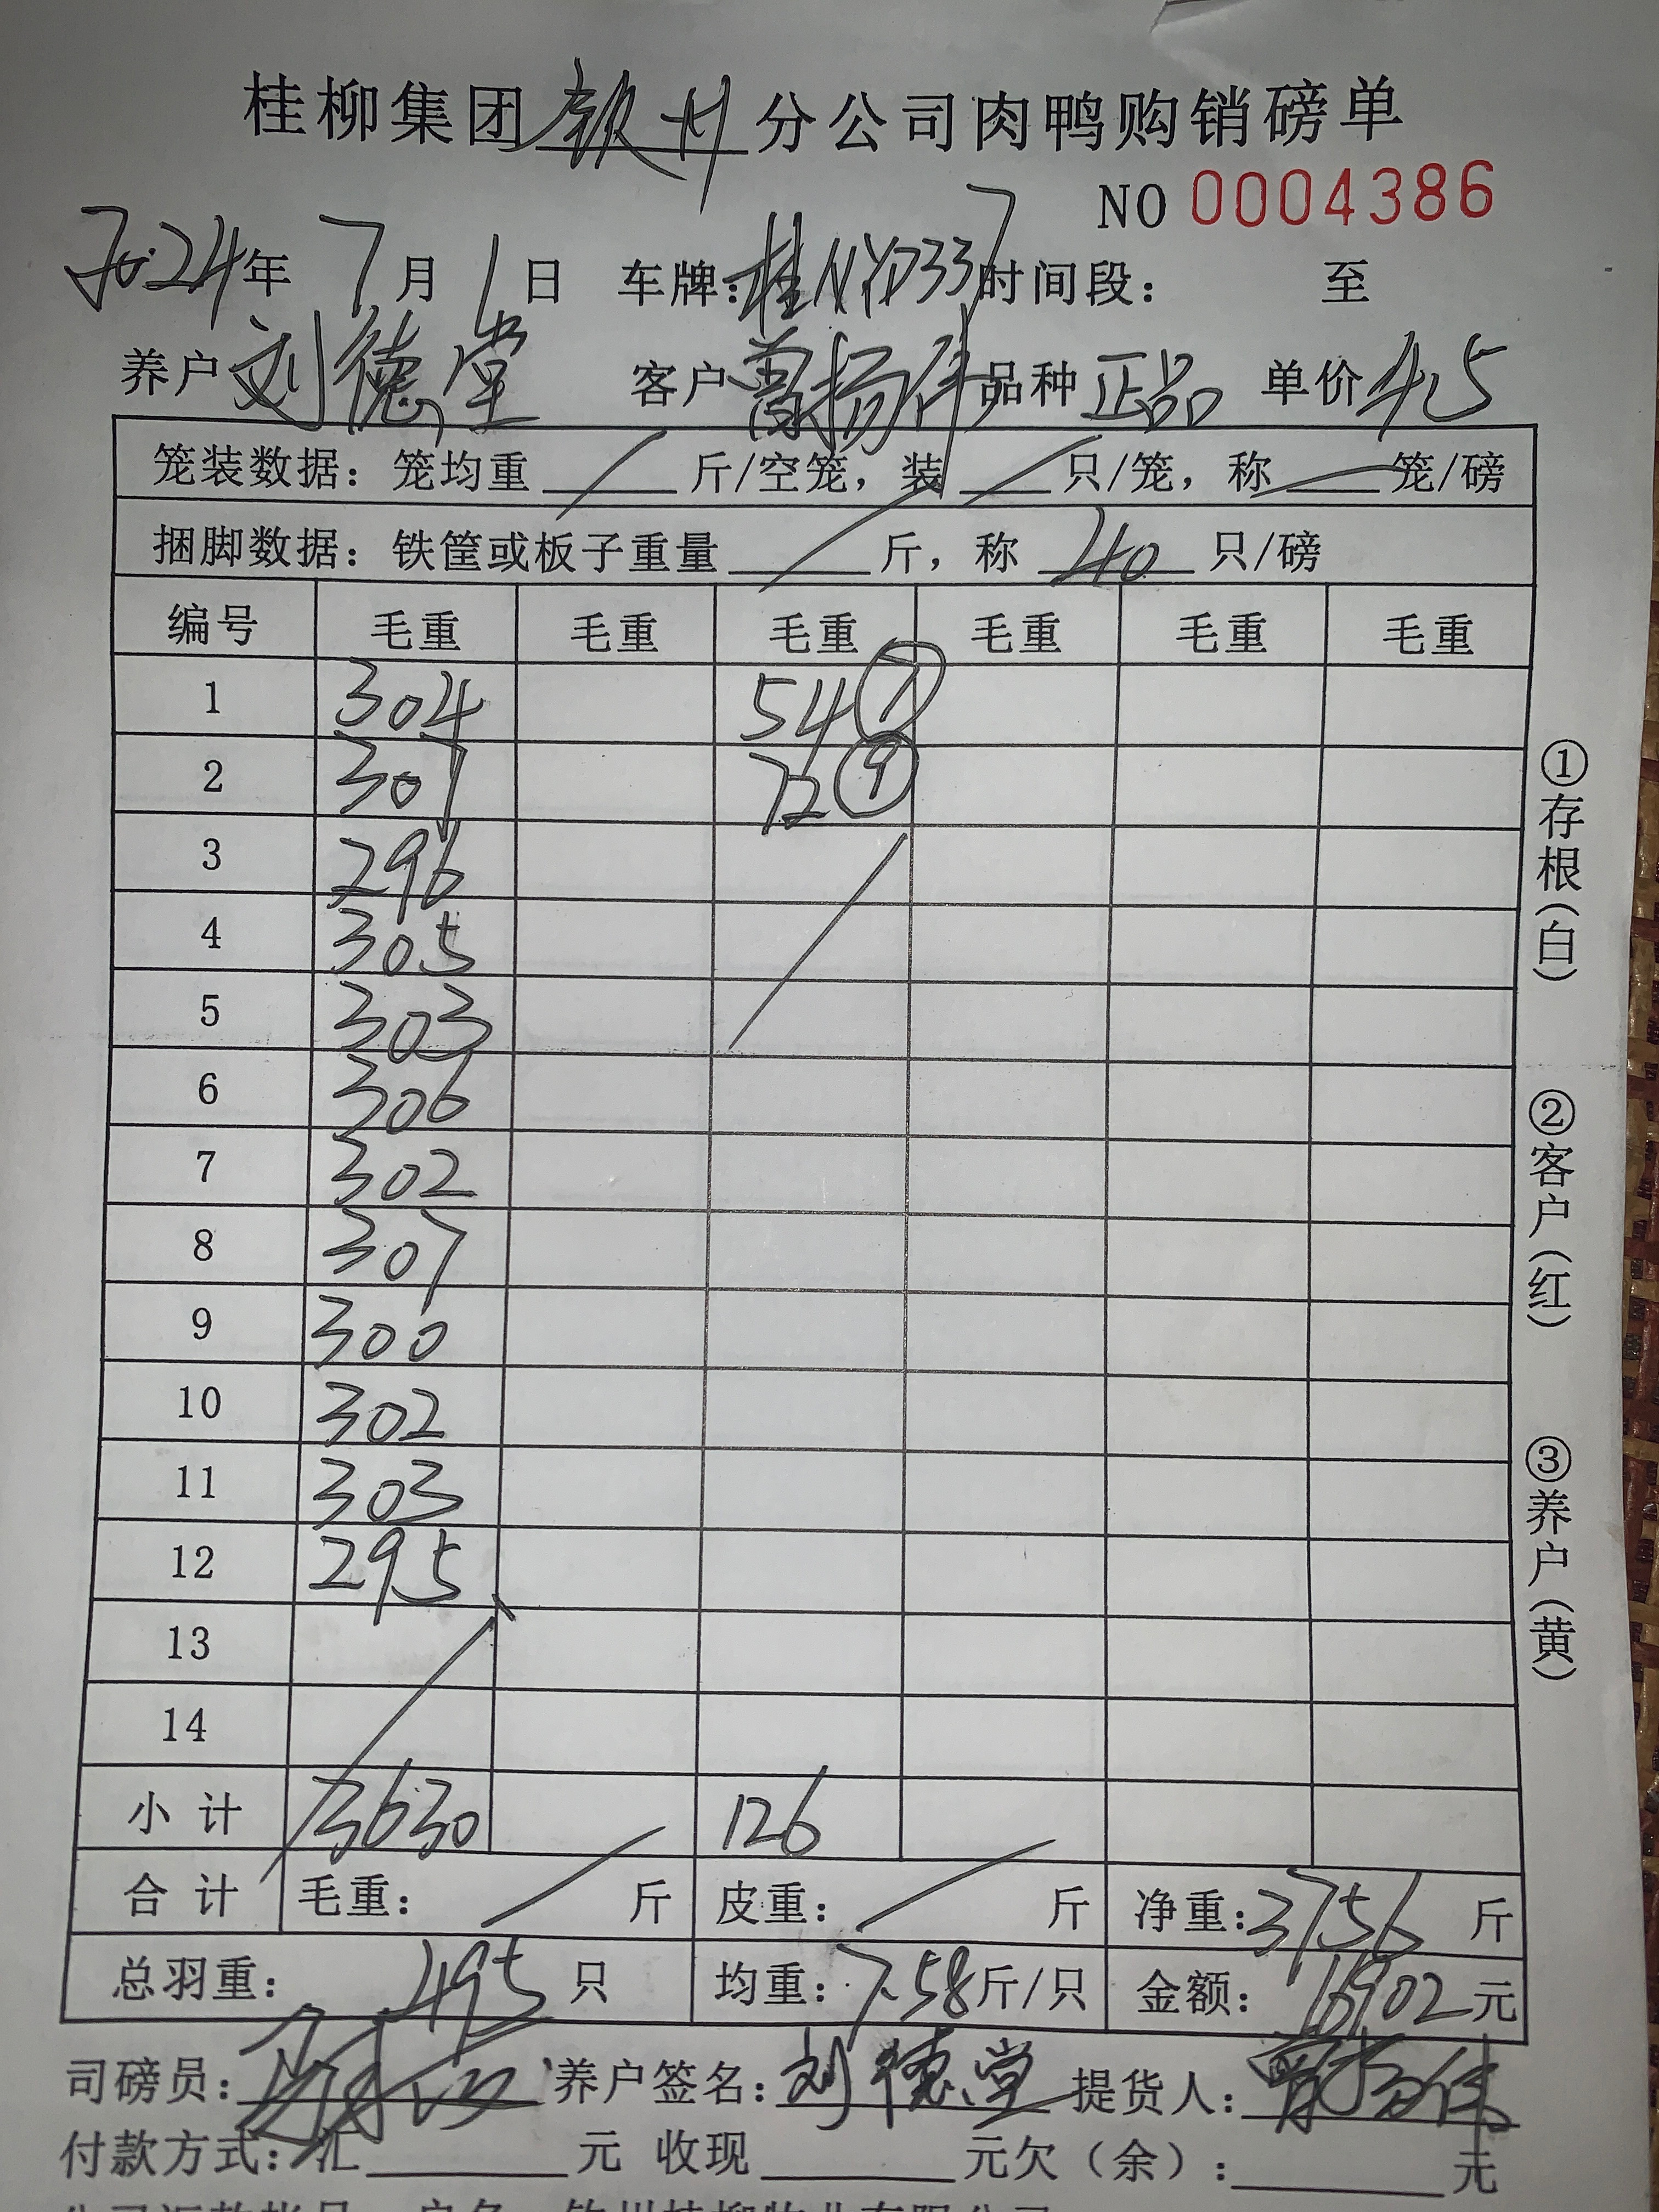 桂柳集团钦州分公司肉鸭购销磅单
NO 0004386
2024年 7月 1日 车牌:桂NYD337 时间段: 至
养户 刘德堂 客户 曾扬伟 品种 正品 单价 4.5
笼装数据: 笼均重 / 斤/空笼, 装 / 只/笼, 称 / 笼/磅
捆脚数据: 铁筐或板子重量 / 斤, 称 40 只/磅
编号 毛重 毛重 毛重 毛重 毛重 毛重
1 304 54 ⑦
2 307 72 ⑨
3 296
4 305
5 303
6 306
7 302
8 307
9 300
10 302
11 303
12 295
13
14
小计 3630 126
合计 毛重: / 斤 皮重: / 斤 净重: 3756 斤
总羽重: 495 只 均重: 7.58 斤/只 金额: 16902 元
司磅员: 养户签名: 刘德堂 提货人: 曾扬伟
付款方式: 汇 元 收现 元欠(余): 元
①存根(白)
②客户(红)
③养户(黄)